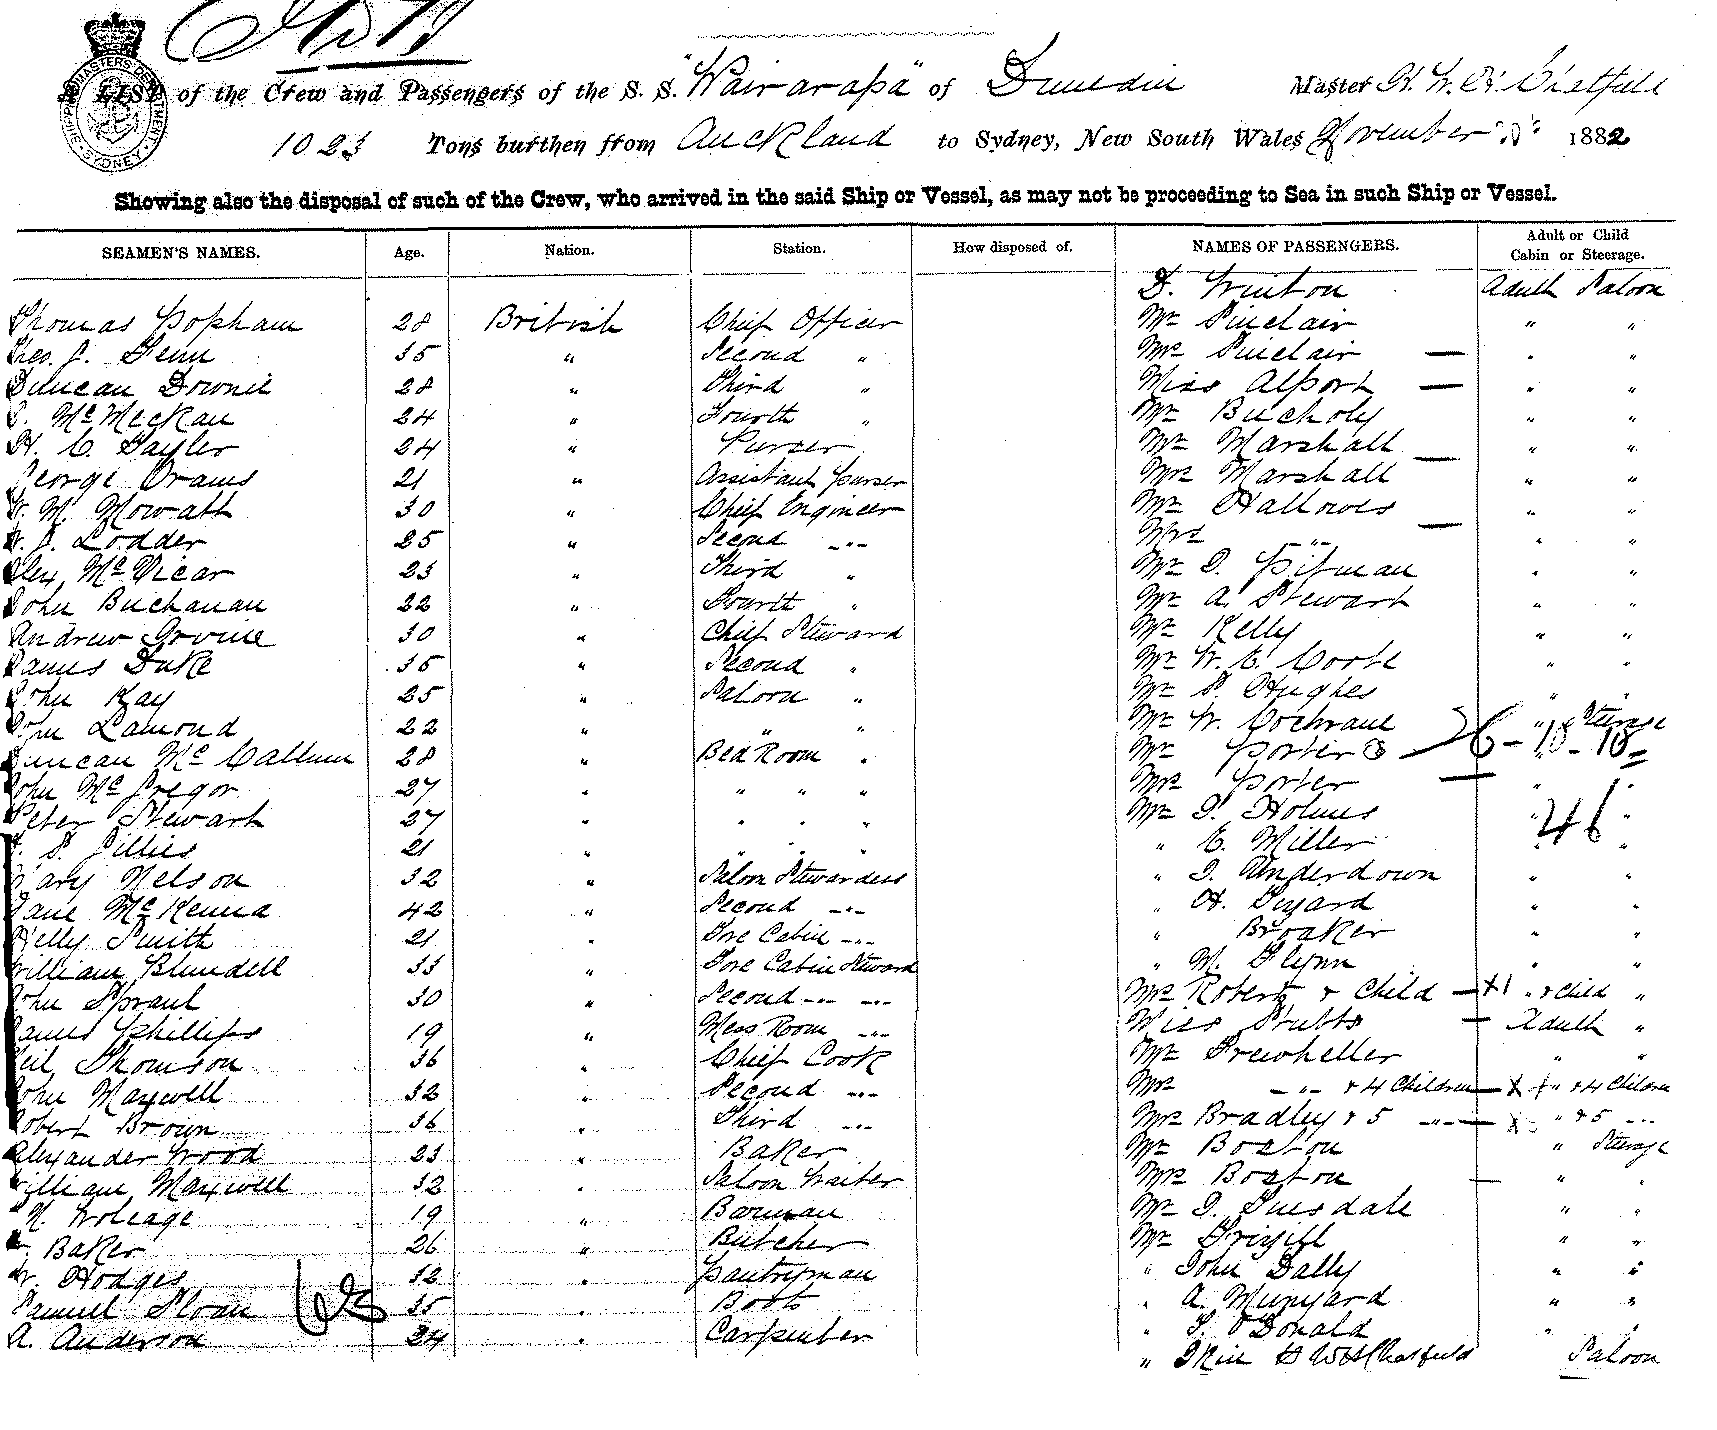 A LIST of the Crew and Passengers of the S. S. "Wairarapa" of Dunedin Master
1023 Tons burthen from Auckland to Sydney, New South Wales November 1882
Showing also the disposal of such of the Crew, who arrived in the said Ship or Vessel, as may not be proceeding to Sea in such Ship or Vessel.
SEAMEN'S NAMES. Age. Nation. Station. How disposed of. NAMES OF PASSENGERS. Adult or Child Cabin or Steerage.
Adult Saloon
Thomas Popham 28 British Chief Officer Mr Sinclair " "
35 " Second " Mrs Sinclair — " "
Duncan Downie 28 " Third " Miss Alport — " "
McMeckan 24 " Fourth " Mr " "
H. C. Tayler 24 " Purser Mr Marshall " "
George Orams 21 " Assistant Purser Mrs Marshall — " "
W. M. Mowatt 30 " Chief Engineer Mr Hallowes " "
W. J. Lodder 25 " Second -"- Mrs -"- — " "
Alex. McVicar 23 " Third " Mr D. Pitman " "
John Buchanan 22 " Fourth " Mr A. Stewart " "
Andrew Irvine 30 " Chief Steward Mr Kelly " "
James Duke 35 " Second " Mr W. E. " "
John Kay 25 " Saloon " Mr S. Hughes " "
John Lamond 22 " " " Mr W. Cochrane " Steerage
Duncan McCallum 28 " Bed Room " Mr Porter 6-18-18
John McGregor 27 " " " " Mrs Porter — " "
Peter Stewart 27 " " " " Mr Holmes " 46 "
Gillies 21 " " " " " E. Miller " "
Mary Nelson 32 " Saloon Stewardess " Underdown " "
Jane McKenna 42 " Second -"- " H. " "
Nelly Smith 21 " Fore Cabin -"- " Broaker " "
William Blundell 33 " Fore Cabin Steward " M. Flynn " "
John Sproul 30 " Second -"- -"- Mrs Roberts & Child — X1 " & Child "
James Phillips 19 " Mess Room -"- Miss Stubbs — Adult "
Neil Thomson 36 " Chief Cook Mr Trewheller " "
John Maxwell 32 " Second -"- Mrs -"- & 4 Children — X " & 4 Children
Robert Brown 36 " Third -"- Mrs Bradley & 5 -"- — X " & 5 -"-
Alexander Wood 23 " Baker Mr Boston " Steerage
William Maxwell 32 " Saloon Waiter Mrs Boston — " "
19 " Barman Mr " "
Baker 26 " Butcher Mr " "
W. Hodges 32 " Pantryman " John Dally " "
Samuel Sloan 35 " Boots " A. Munyard " "
A. Anderson 24 " Carpenter " O'Donald " "
" Chatfield Saloon